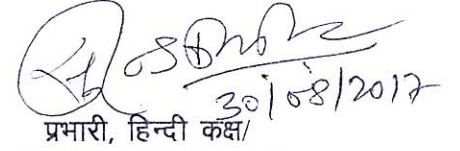 30/08/2017
प्रभारी, हिन्दी कक्ष/